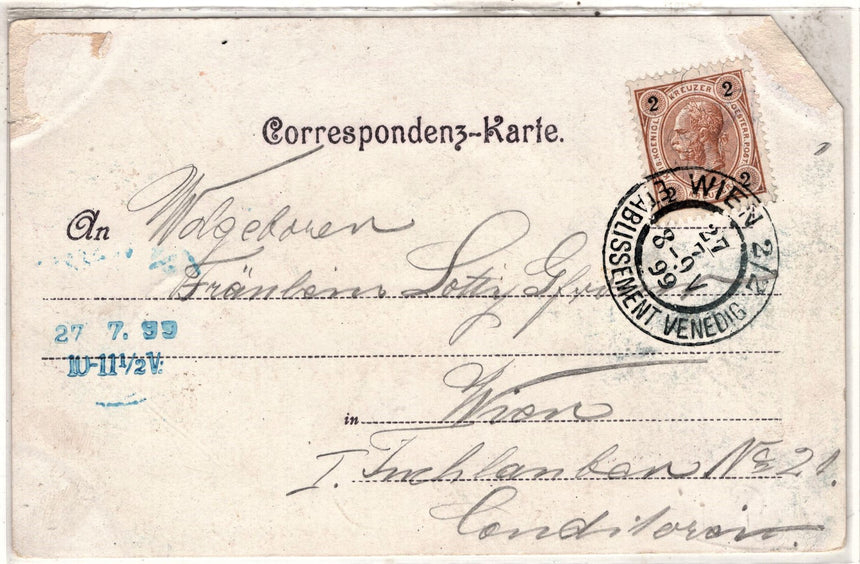 Correspondenz-Karte.
2 KREUZER 2
OESTERR. POST
2 2
WIEN 2/2
ETABLISSEMENT VENEDIG
27 7
8-9 V
99
An Wolgeboren
Fräulein Lotty
27 7. 99
10-11½V.
in Wien
I. Tuchlauben No 21.
Conditorei.